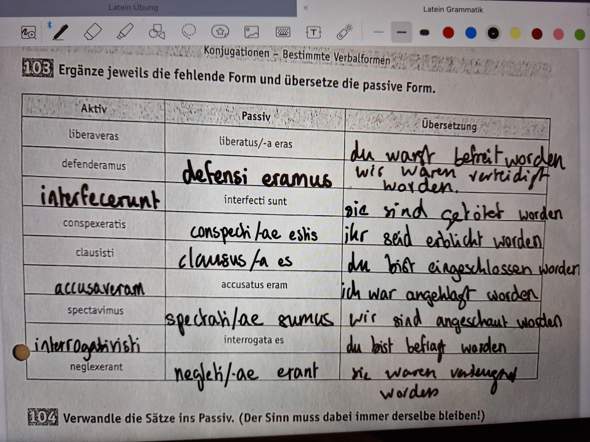 Latein Übung
Latein Grammatik
Konjugationen – Bestimmte Verbalformen
103 Ergänze jeweils die fehlende Form und übersetze die passive Form.
Aktiv Passiv Übersetzung
liberaveras liberatus/-a eras du warst befreit worden
defenderamus defensi eramus wir waren verteidigt worden.
interfecerunt interfecti sunt sie sind getötet worden
conspexeratis conspecti/-ae estis ihr seid erblickt worden
clausisti clausus/-a es du bist eingeschlossen worden
accusaveram accusatus eram ich war angeklagt worden
spectavimus spectati/-ae sumus wir sind angeschaut worden
interrogativisti interrogata es du bist befragt worden
neglexerant neglecti/-ae erant sie waren worden
104 Verwandle die Sätze ins Passiv. (Der Sinn muss dabei immer derselbe bleiben!)